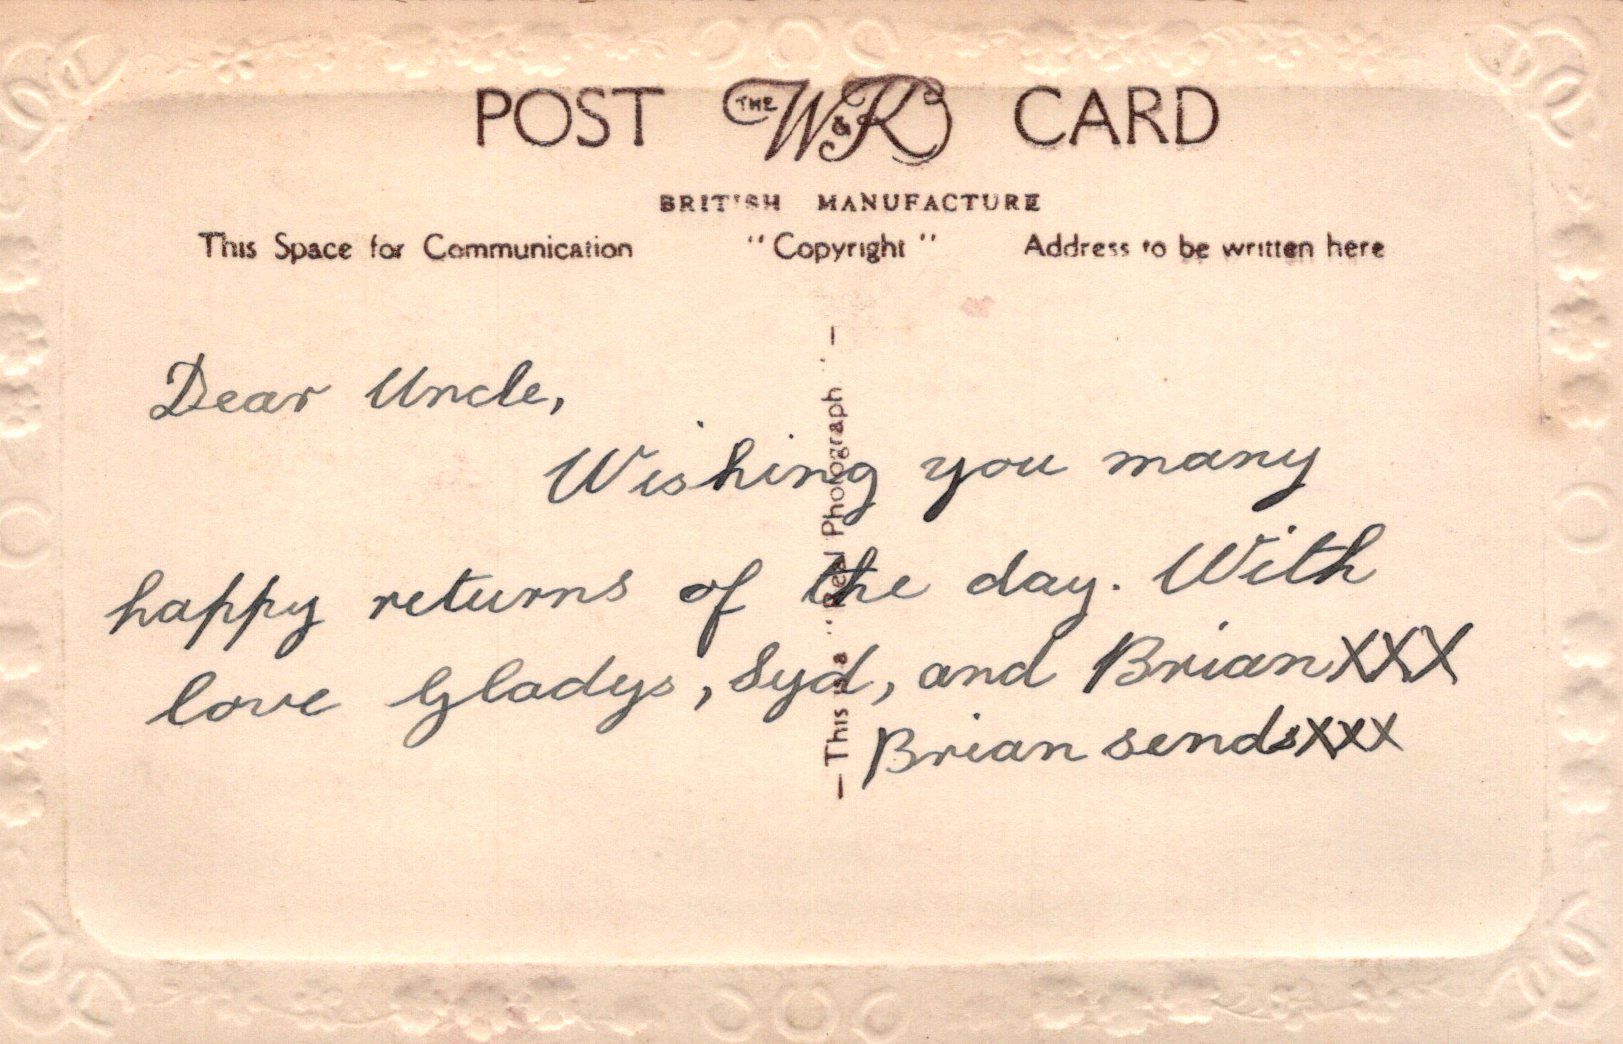 POST THE W&K CARD
BRITISH MANUFACTURE
This Space for Communication "Copyright" Address to be written here
Dear Uncle,
Wishing you many
happy returns of the day. With
love Gladys, Syd, and Brian XXX
Brian sends xxx
— This is a "Real Photograph" —